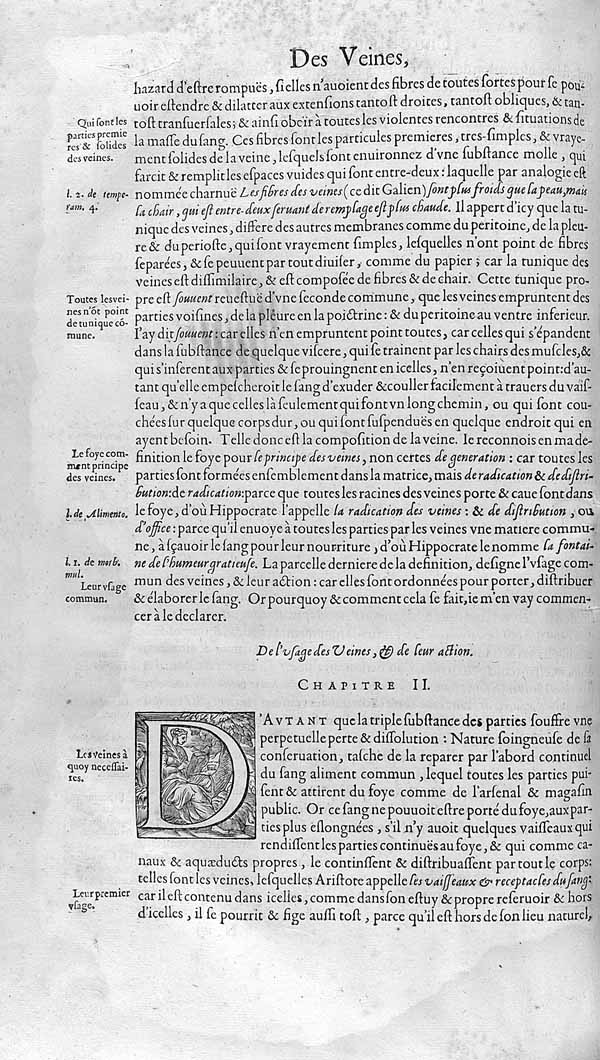 Des Veines,
hazard d'estre rompuës, si elles n'auoient des fibres de toutes sortes pour se pou-
uoir estendre & dilatter aux extensions tantost droites, tantost obliques, & tan-
tost transuersales; & ainsi obeïr à toutes les violentes rencontres & situations de
la masse du sang. Ces fibres sont les particules premieres, tres-simples, & vraye-
ment solides de la veine, lesquels sont enuironnez d'vne substance molle, qui
farcit & remplit les espaces vuides qui sont entre-deux: laquelle par analogie est
nommée charnuë Les fibres des veines (ce dit Galien) sont plus froids que la peau, mais
la chair, qui est entre-deux seruant de remplage est plus chaude. Il appert d'icy que la tu-
nique des veines, differe des autres membranes comme du peritoine, de la pleu-
re & du perioste, qui sont vrayement simples, lesquelles n'ont point de fibres
separées, & se peuuent par tout diuiser, comme du papier; car la tunique des
veines est dissimilaire, & est composée de fibres & de chair. Cette tunique pro-
pre est souuent reuestuë d'vne seconde commune, que les veines empruntent des
parties voisines, de la pleure en la poictrine: & du peritoine au ventre inferieur.
I'ay dit souuent: car elles n'en empruntent point toutes, car celles qui s'épandent
dans la substance de quelque viscere, qui se trainent par les chairs des muscles, &
qui s'inserent aux parties & se prouingnent en icelles, n'en reçoiuent point: d'au-
tant qu'elle empescheroit le sang d'exuder & couller facilement à trauers du vais-
seau, & n'y a que celles là seulement qui font vn long chemin, ou qui sont cou-
chées sur quelque corps dur, ou qui sont suspenduës en quelque endroit qui en
ayent besoin. Telle donc est la composition de la veine. Ie reconnois en ma de-
finition le foye pour le principe des veines, non certes de generation: car toutes les
parties sont formées ensemblement dans la matrice, mais de radication & de distri-
bution: de radication: parce que toutes les racines des veines porte & caue sont dans
le foye, d'où Hippocrate l'appelle la radication des veines: & de distribution, ou
d'office: parce qu'il enuoye à toutes les parties par les veines vne matiere commu-
ne, à sçauoir le sang pour leur nourriture, d'où Hippocrate le nomme la fontai-
ne de l'humeur gratieuse. La parcelle derniere de la definition, designe l'vsage com-
mun des veines, & leur action: car elles sont ordonnées pour porter, distribuer
& élaborer le sang. Or pourquoy & comment cela se fait, ie m'en vay commen-
cer à le declarer.
Qui sont les
parties premie
res & solides
des veines.
l. 2. de tempe-
ram. 4.
Toutes les vei-
nes n'ōt point
de tunique cō-
mune.
Le foye com-
ment principe
des veines.
l. de Alimento.
l. 1. de morb.
mul.
Leur vsage
commun.
De l'vsage des Veines, & de leur action.
CHAPITRE II.
D'AVTANT que la triple substance des parties souffre vne
perpetuelle perte & dissolution: Nature soingneuse de sa
conseruation, tasche de la reparer par l'abord continuel
du sang aliment commun, lequel toutes les parties pui-
sent & attirent du foye comme de l'arsenal & magasin
public. Or ce sang ne pouuoit estre porté du foye, aux par-
ties plus eslongnées, s'il n'y auoit quelques vaisseaux qui
rendissent les parties continuës au foye, & qui comme ca-
naux & aquæducts propres, le continssent & distribuassent par tout le corps:
telles sont les veines, lesquelles Aristote appelle les vaisseaux & receptacles du sang:
car il est contenu dans icelles, comme dans son estuy & propre reseruoir & hors
d'icelles, il se pourrit & fige aussi tost, parce qu'il est hors de son lieu naturel,
Les veines à
quoy necessai-
res.
Leur premier
vsage.